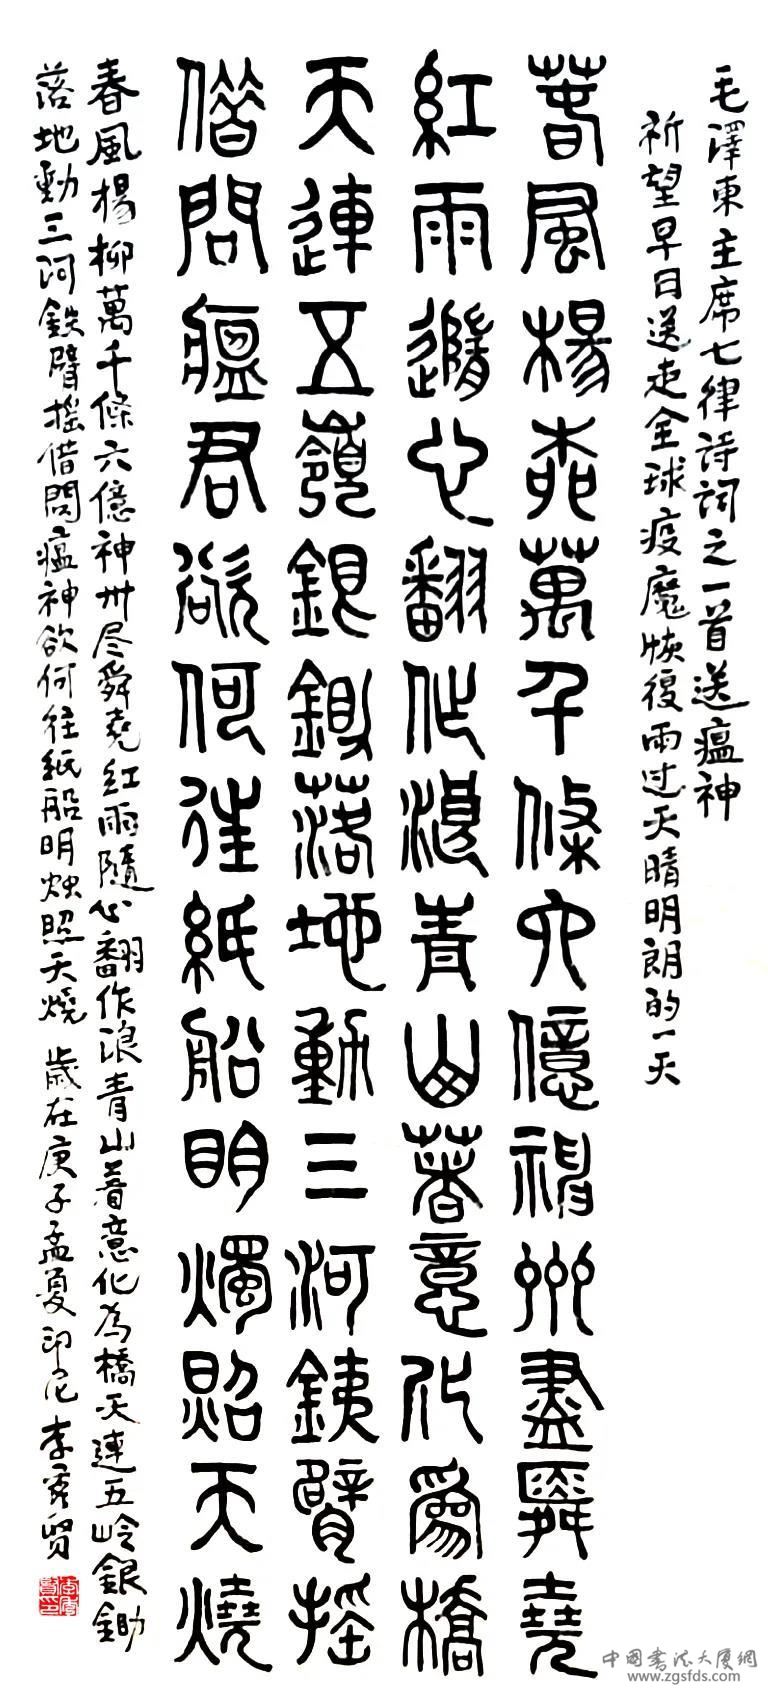 毛澤東主席七律诗詞之一首送瘟神
祈望早日送走全球疫魔恢復雨过天晴明朗的一天
春風楊柳萬千條六億神州盡舜堯
紅雨隨心翻作浪青山著意化爲橋
天連五嶺銀鋤落地動三河鐵臂搖
借問瘟君欲何往紙船明燭照天燒
春風楊柳萬千條六億神州尽舜堯红雨隨心翻作浪青山着意化为橋天連五岭銀鋤
落地動三河鉄臂摇借問瘟神欲何往紙船明烛照天燒 歲在庚子孟夏印尼李
中国書法大厦網
www.zgsfds.com